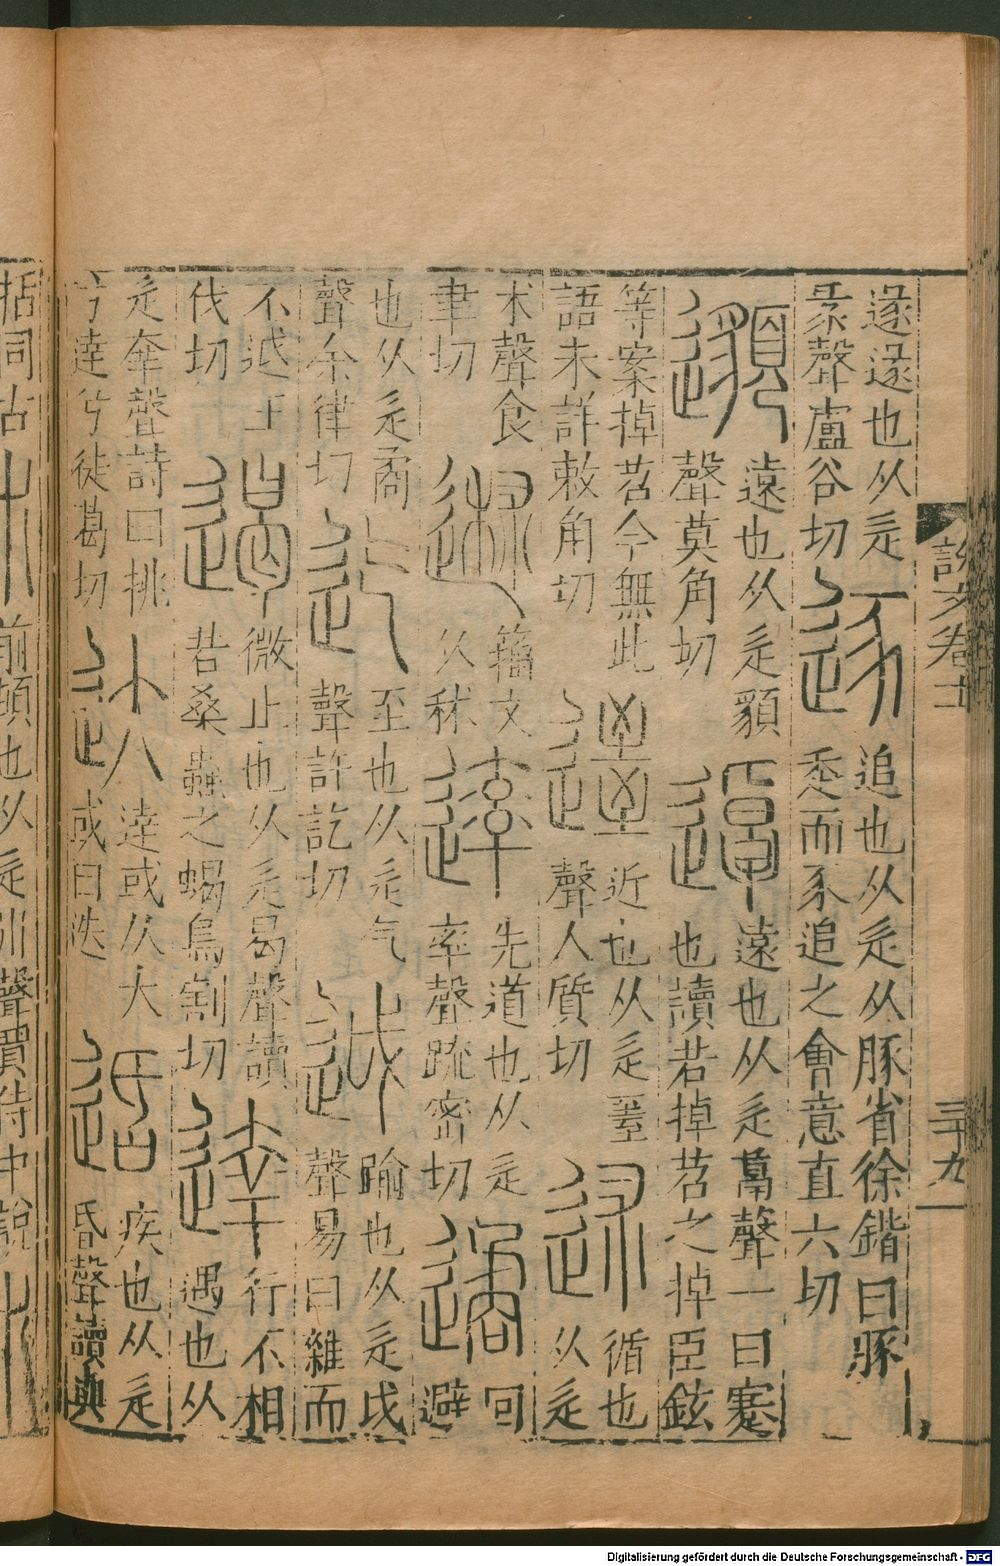 說文卷士
三十九
逯逯也从辵彔聲盧谷切 逐 追也从辵从豚省徐鍇曰豚走而豕追之會意直六切
邈 遠也从辵䫉聲莫角切 逴 遠也从辵卓聲一曰蹇也讀若掉苕之掉臣鉉
等案掉苕今無此語未詳敕角切 𨕬 近也从辵臸聲人質切 述 循也从辵
术聲食聿切 𨔵 籒文从秫 䢦 先道也从辵率聲疏密切 遹 回避
也从辵矞聲余律切 迄 至也从辵气聲許訖切 𨒋 踰也从辵戉聲易曰雜而
不𨒋王伐切 遏 微止也从辵曷聲讀若桑蟲之蝎烏割切 達 行不相遇也从
辵羍聲詩曰挑兮達兮徒葛切 达 達或从大或曰迭 适 疾也从辵昏聲讀與
括同古 前頓也从辵 聲賈侍中說